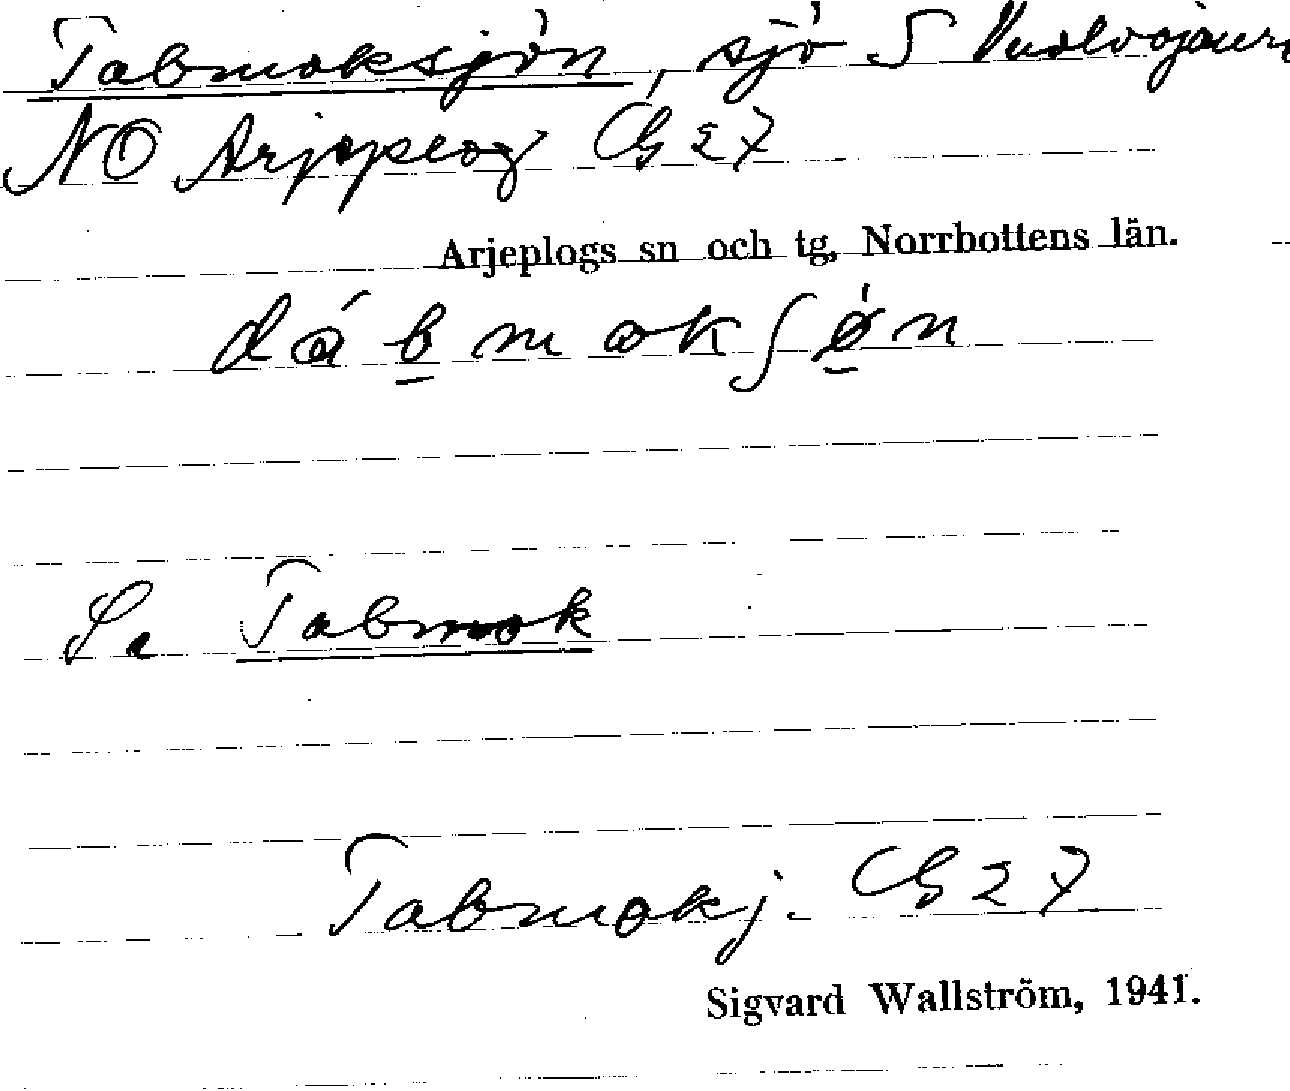 Tabmoksjön, sjö S Vuolvojaure
NO Arjeplog G 27
Arjeplogs sn och tg, Norrbottens län.
dábmokʃøn
La Tabmok
Tabmokj. G 27
Sigvard Wallström, 1941.